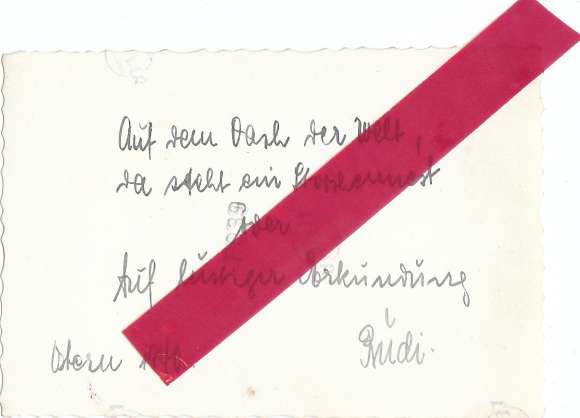 Auf dem Dach der Welt,
da steht ein Storchennest
oder
Auf lustiger Erkundung
Ostern
Rudi.